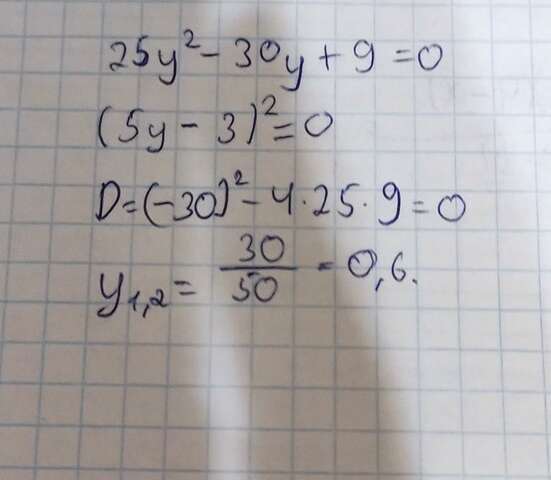 25y² - 30y + 9 = 0
(5y - 3)² = 0
D = (-30)² - 4·25·9 = 0
y₁,₂ = 30/50 = 0,6.